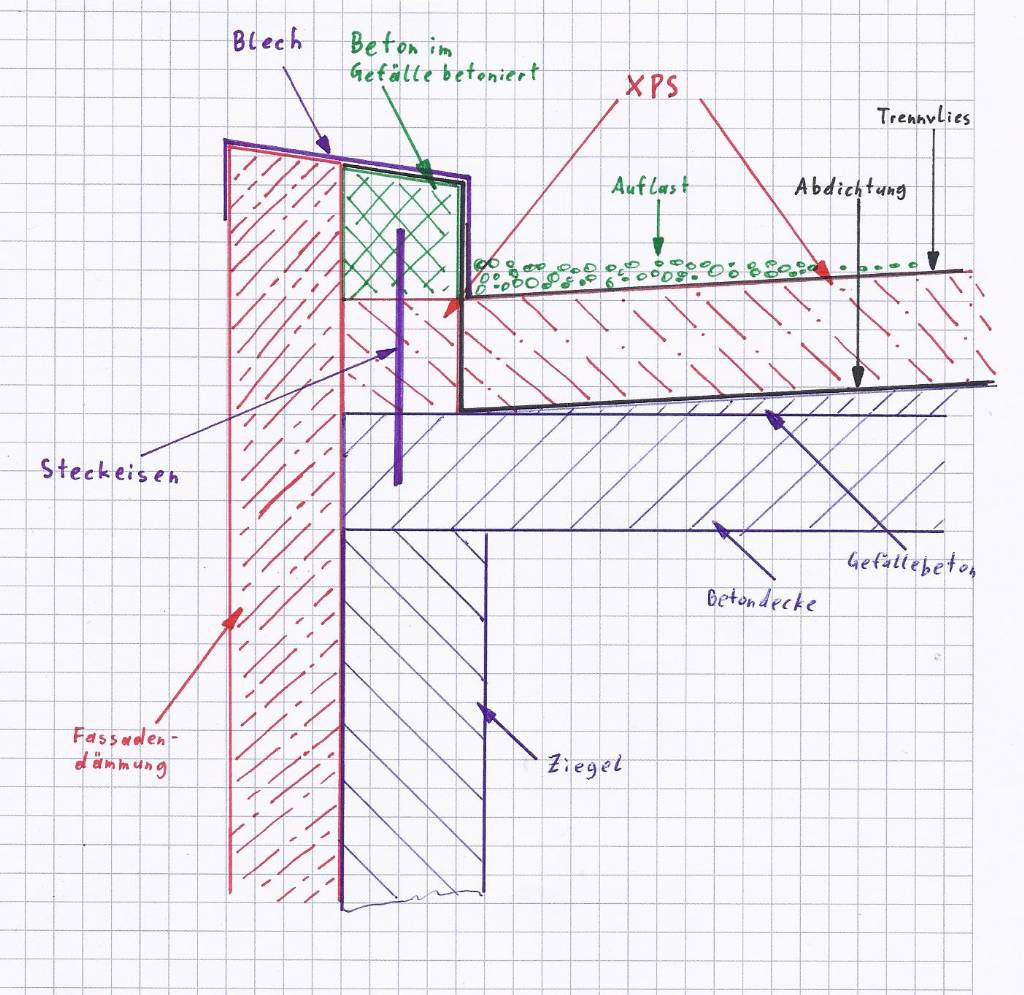 Blech
Beton im
Gefälle betoniert
XPS
Trennvlies
Auflast
Abdichtung
Steckeisen
Gefällebeton
Betondecke
Fassaden-
dämmung
Ziegel